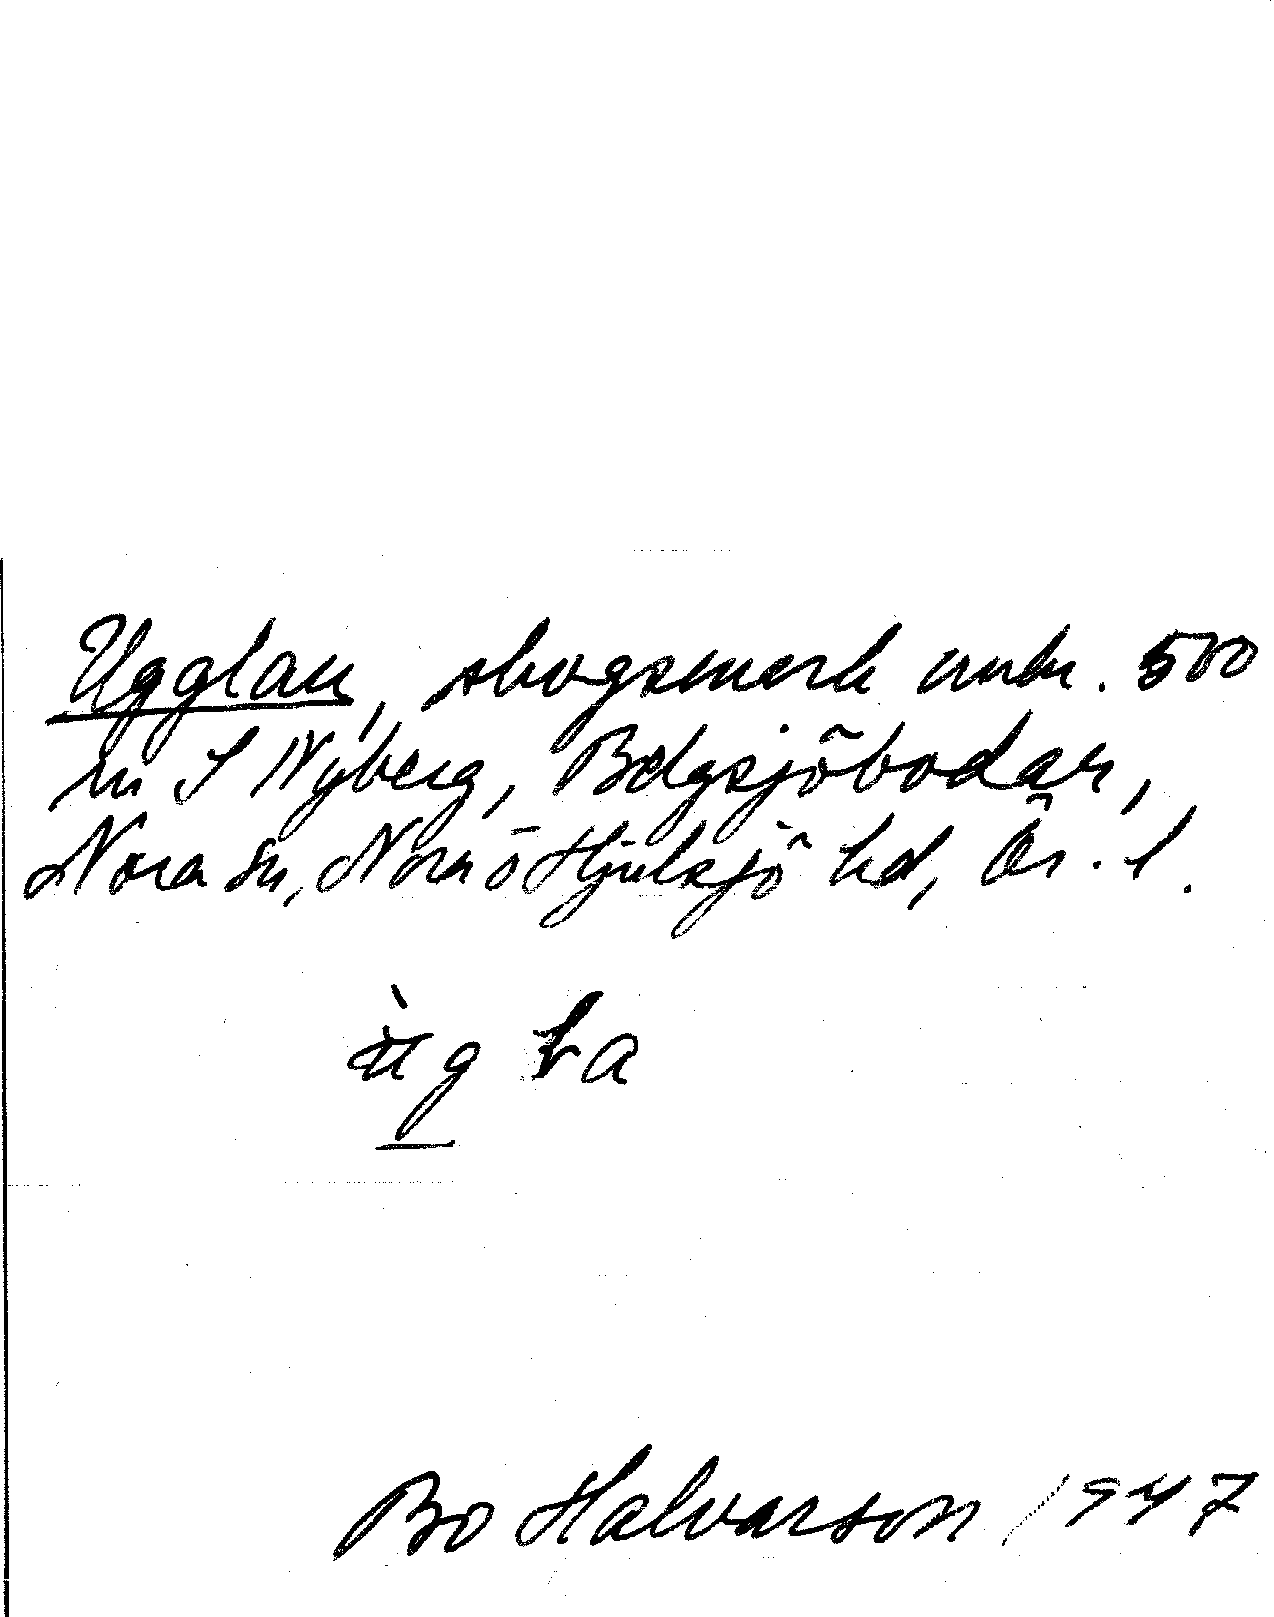 Ugglan, skogsmark omkr. 500
m S Nyberg, Bdgsjöbodar,
Nora sn, Nora ö Hjulsjö hd, Ör. l.
Bo Halvarson 1947